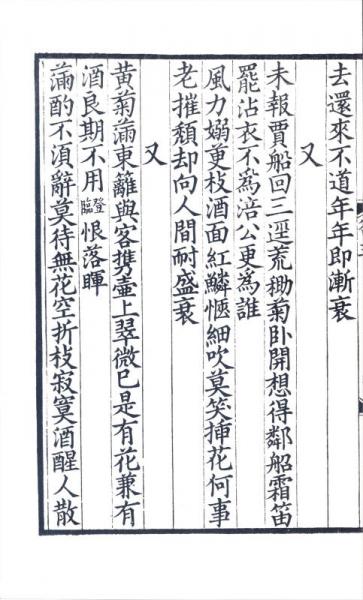 去還來不道年年即漸衰
又
未報賈船回三逕荒鋤菊卧開想得鄰船霜笛
罷沾衣不為涪公更為誰
風力嫋萸枝酒面紅鱗愜細吹莫笑揷花何事
老摧頹却向人間耐盛衰
又
黄菊滿東籬與客携壷上翠微巳是有花兼有
酒良期不用登臨恨落暉
滿酌不湏辭莫待無花空折枝寂寞酒醒人散